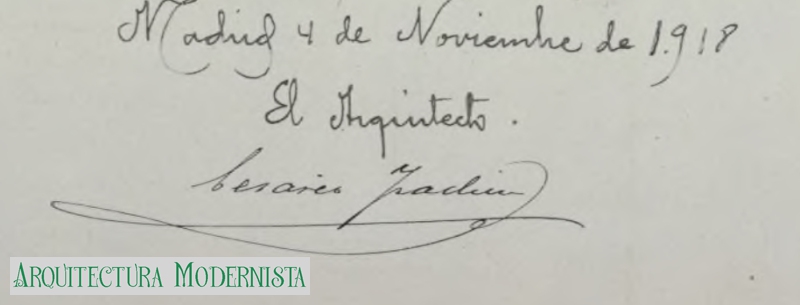 Madrid 4 de Noviembre de 1.918
El Arquitecto.
Cesareo Iradier
ARQUITECTURA MODERNISTA